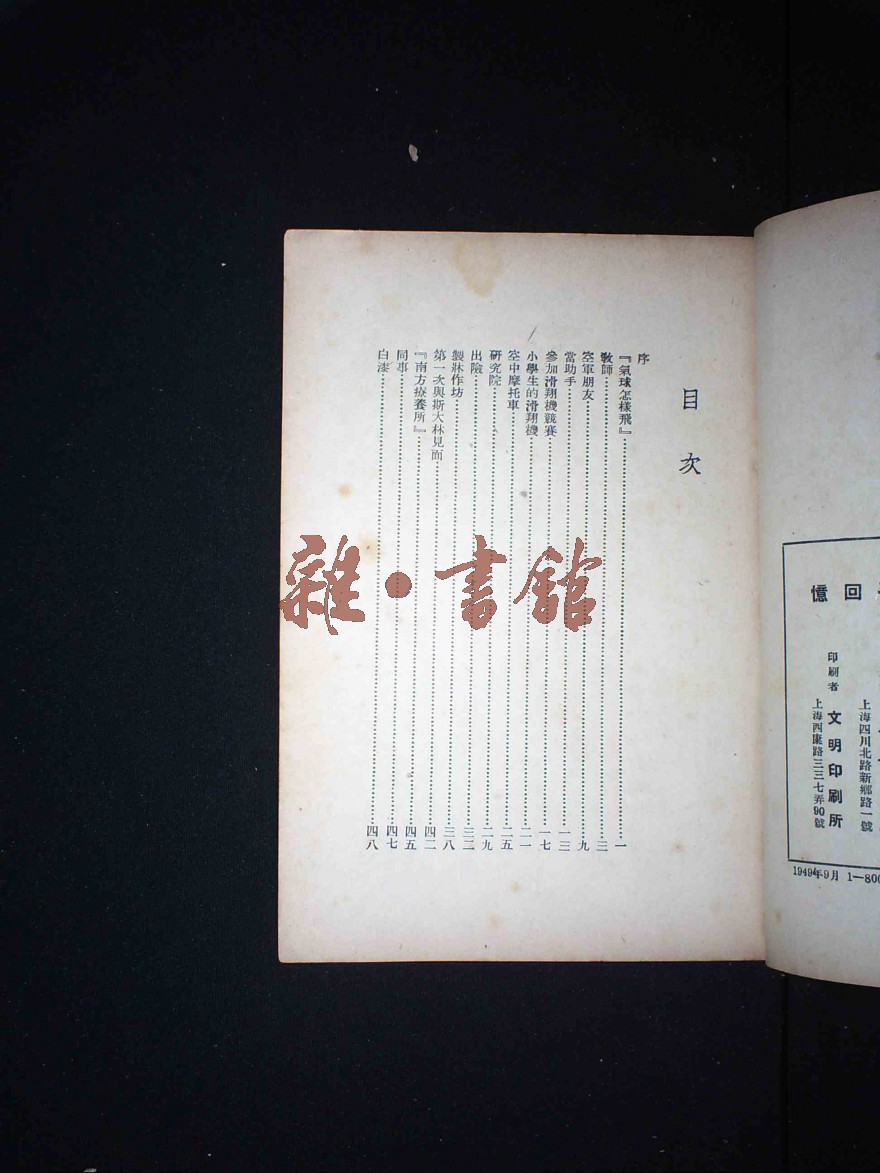 憶回
上海四川北路新鄉路一號
印刷者 文明印刷所
上海西康路三三七弄90號
1949年9月 1—800
目次
序
『氣球怎樣飛』 一
教師 三
空軍朋友 九
當助手 一三
參加滑翔機競賽 一七
小學生的滑翔機 二一
空中摩托車 二五
研究院 二九
出險 三二
製牀作坊 三八
第一次與斯大林見面 四二
『南方療養所』 四五
同事 四七
白漆 四八
雜·書館